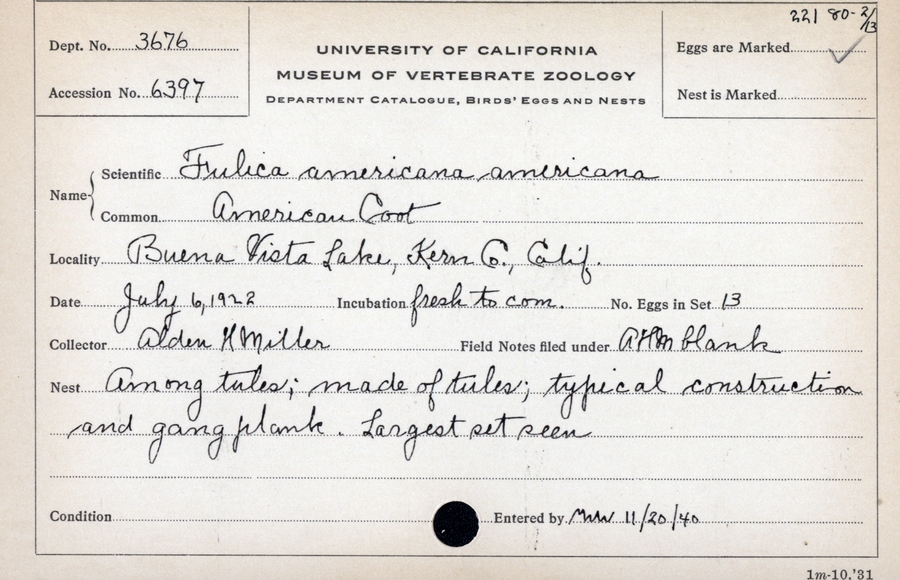 221 80-2/13
Dept. No. 3676
UNIVERSITY OF CALIFORNIA
Eggs are Marked ✓
MUSEUM OF VERTEBRATE ZOOLOGY
Accession No. 6397
DEPARTMENT CATALOGUE, BIRDS' EGGS AND NESTS
Nest is Marked
Name { Scientific Fulica americana americana
Common American Coot
Locality Buena Vista Lake, Kern Co., Calif.
Date July 6, 1922 Incubation fresh to com. No. Eggs in Set 13
Collector Alden H Miller Field Notes filed under AHM blank
Nest Among tules; made of tules; typical construction
and gang plank. Largest set seen
Condition Entered by 11/20/40
1m-10,'31